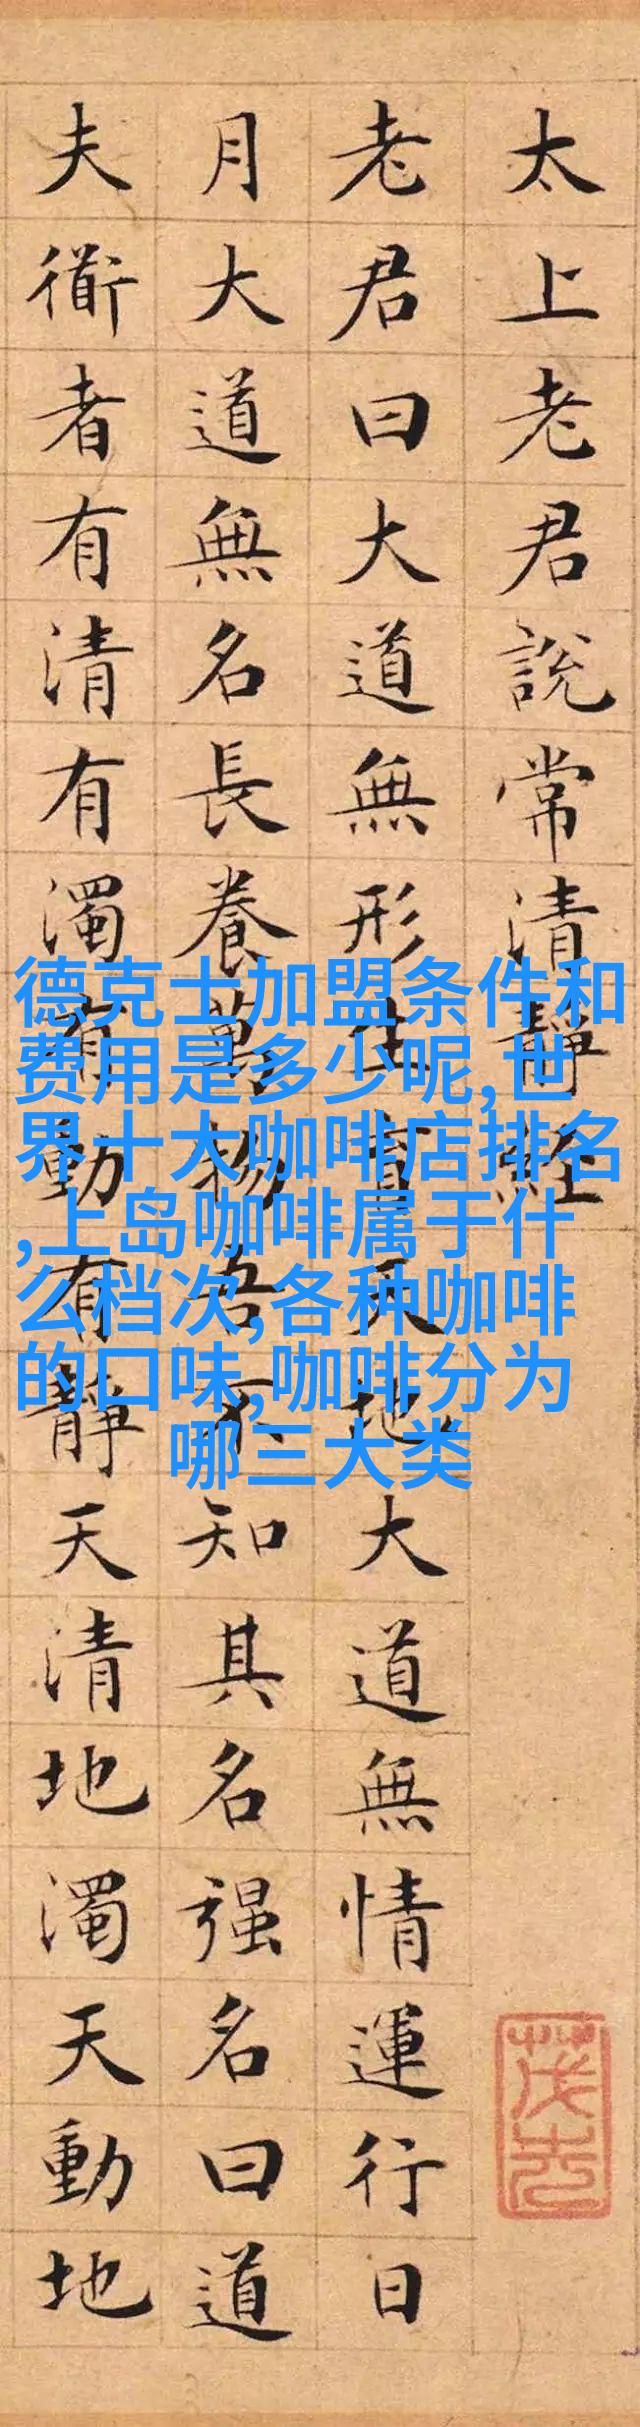 太上老君說常清靜經
老君曰大道無形生育天地大道無情運行日
月大道無名長養萬物吾不知其名强名曰道
夫衜者有清有濁有動有靜天清地濁天動地
德克士加盟条件和
费用是多少呢,世
界十大咖啡店排名
,上岛咖啡属于什
么档次,各种咖啡
的口味,咖啡分为
哪三大类